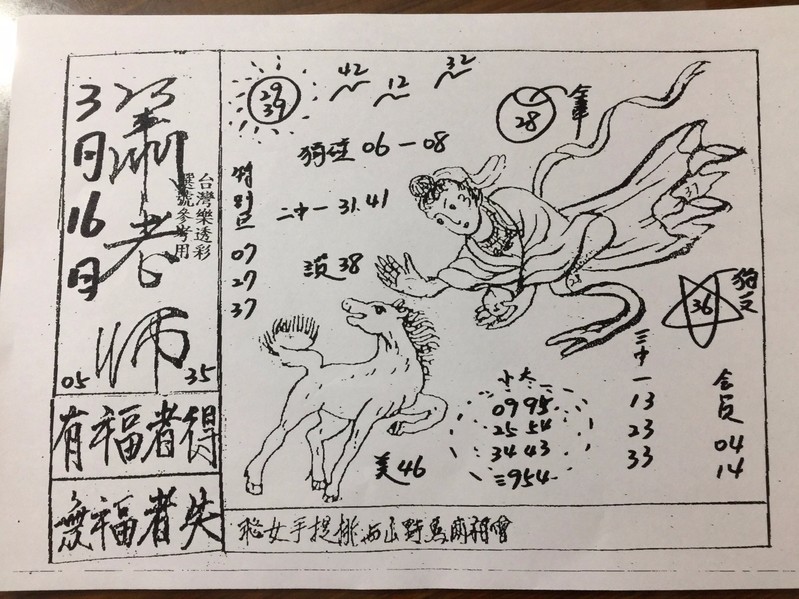 3月16日
蕭老師
台灣樂透彩
選號參考用
05
35
有福者得
無福者失
29
39
42
12
32
28
06-08
特別
07
27
37
二中一 31.41
38
36
三中一
13
23
33
会員
04
14
小大
09 95
25 54
34 43
三954
美46
女手提
山野馬兩相會